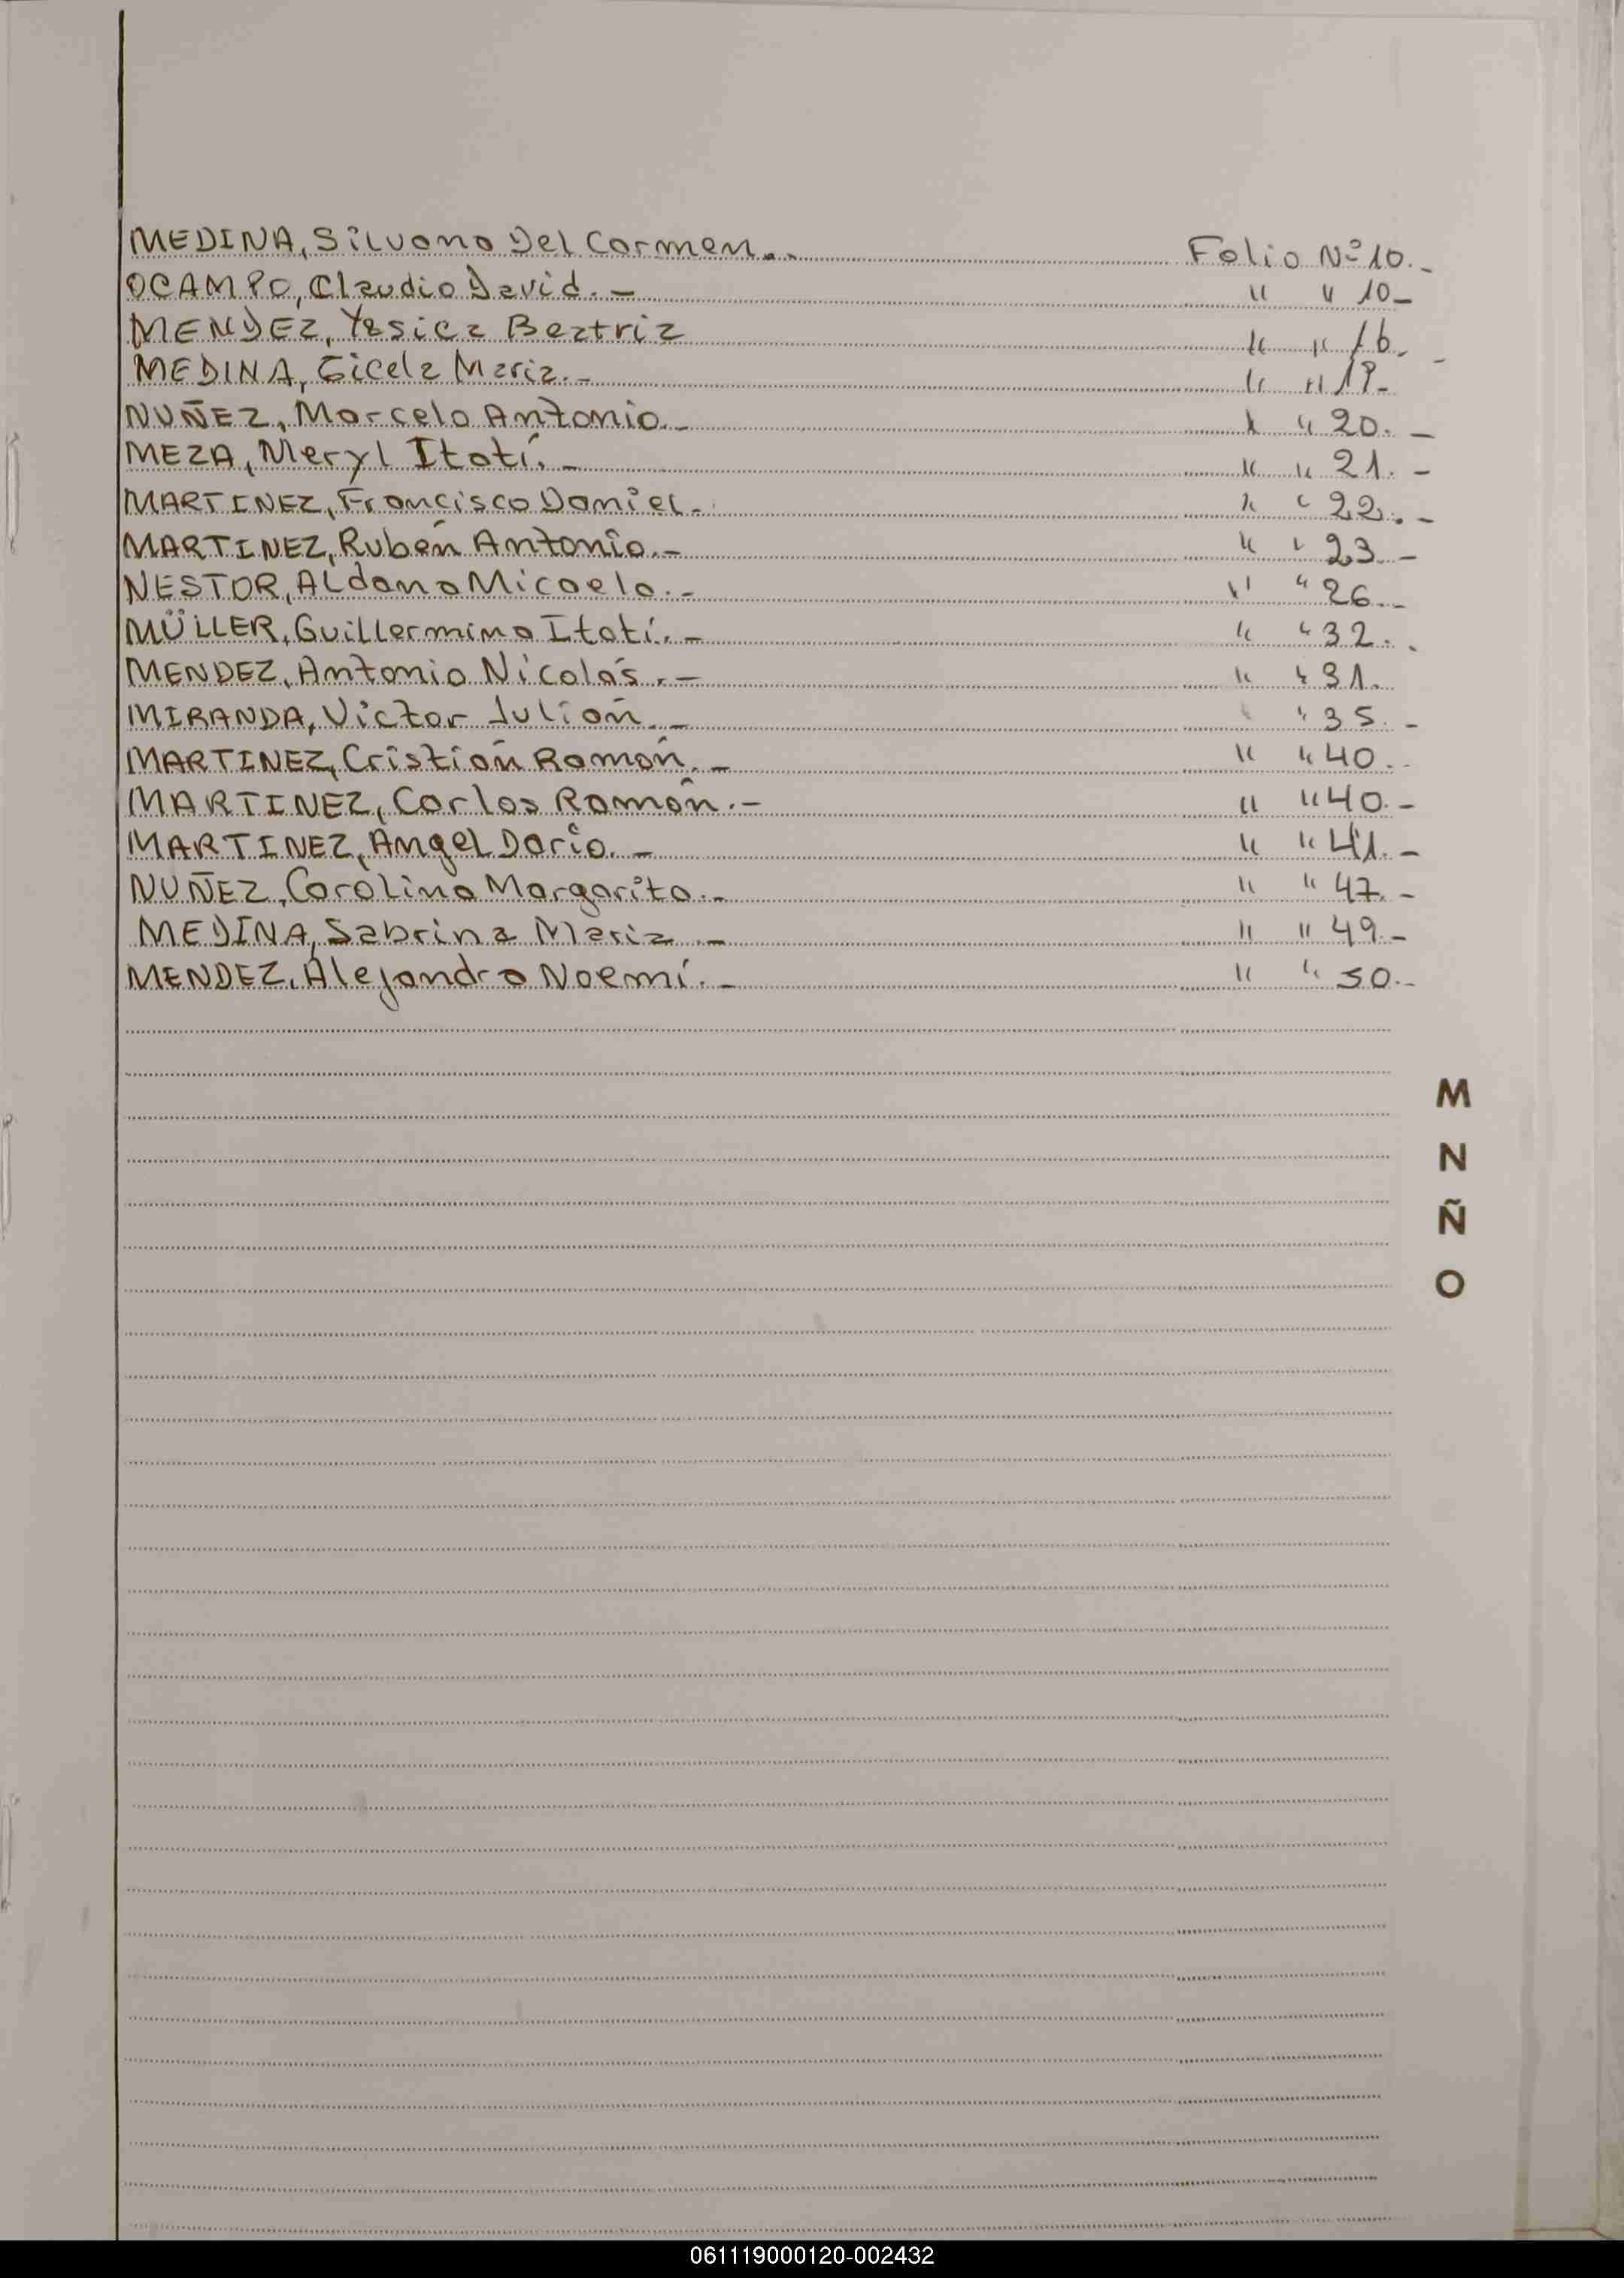 MEDINA, Silvana Del Carmen.. Folio Nº 10.-
OCAMPO, Claudio David.- " " 10-
MENDEZ, Yesica Beatriz " " 16.-
MEDINA, Gicela Maria.- " "
NUÑEZ, Marcelo Antonio.- " " 20.-
MEZA, Meryl Itatí.- " " 21.-
MARTINEZ, Francisco Daniel.- " " 22.-
MARTINEZ, Rubén Antonio.- " " 23.-
NESTOR, Aldana Micaela.- " " 26.-
MÜLLER, Guillermina Itatí.- " " 32.-
MENDEZ, Antonio Nicolás.- " " 31.
MIRANDA, Victor Julián.- " " 35.-
MARTINEZ, Cristián Ramón.- " " 40.-
MARTINEZ, Carlos Ramón.- " " 40.-
MARTINEZ, Angel Darío.- " " 41.-
NUÑEZ, Carolina Margarita.- " " 47.-
MEDINA, Sabrina Maria.- " " 49.-
MENDEZ, Alejandra Noemí.- " " 50.-
M
N
Ñ
O
061119000120-002432